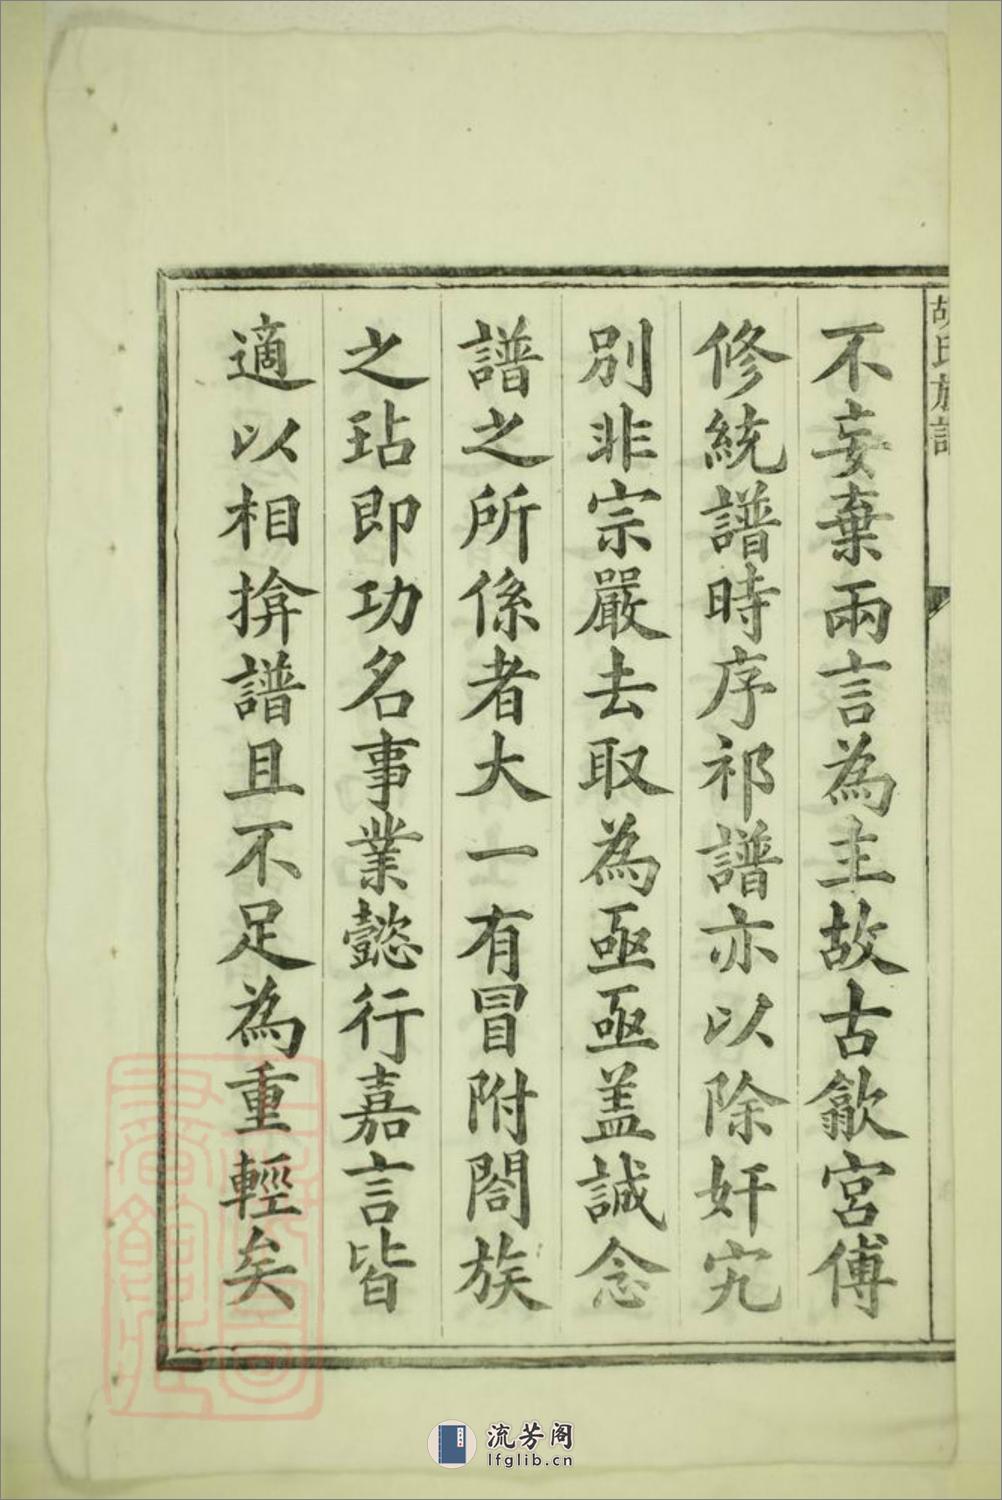 胡氏族譜
不妄棄兩言為主故古歙宮傅
修統譜時序祁譜亦以除奸宄
別非宗嚴去取為亟亟盖誠念
譜之所係者大一有冒附閤族
之玷即功名事業懿行嘉言皆
適以相揜譜且不足為重輕矣
流芳阁
lfglib.cn